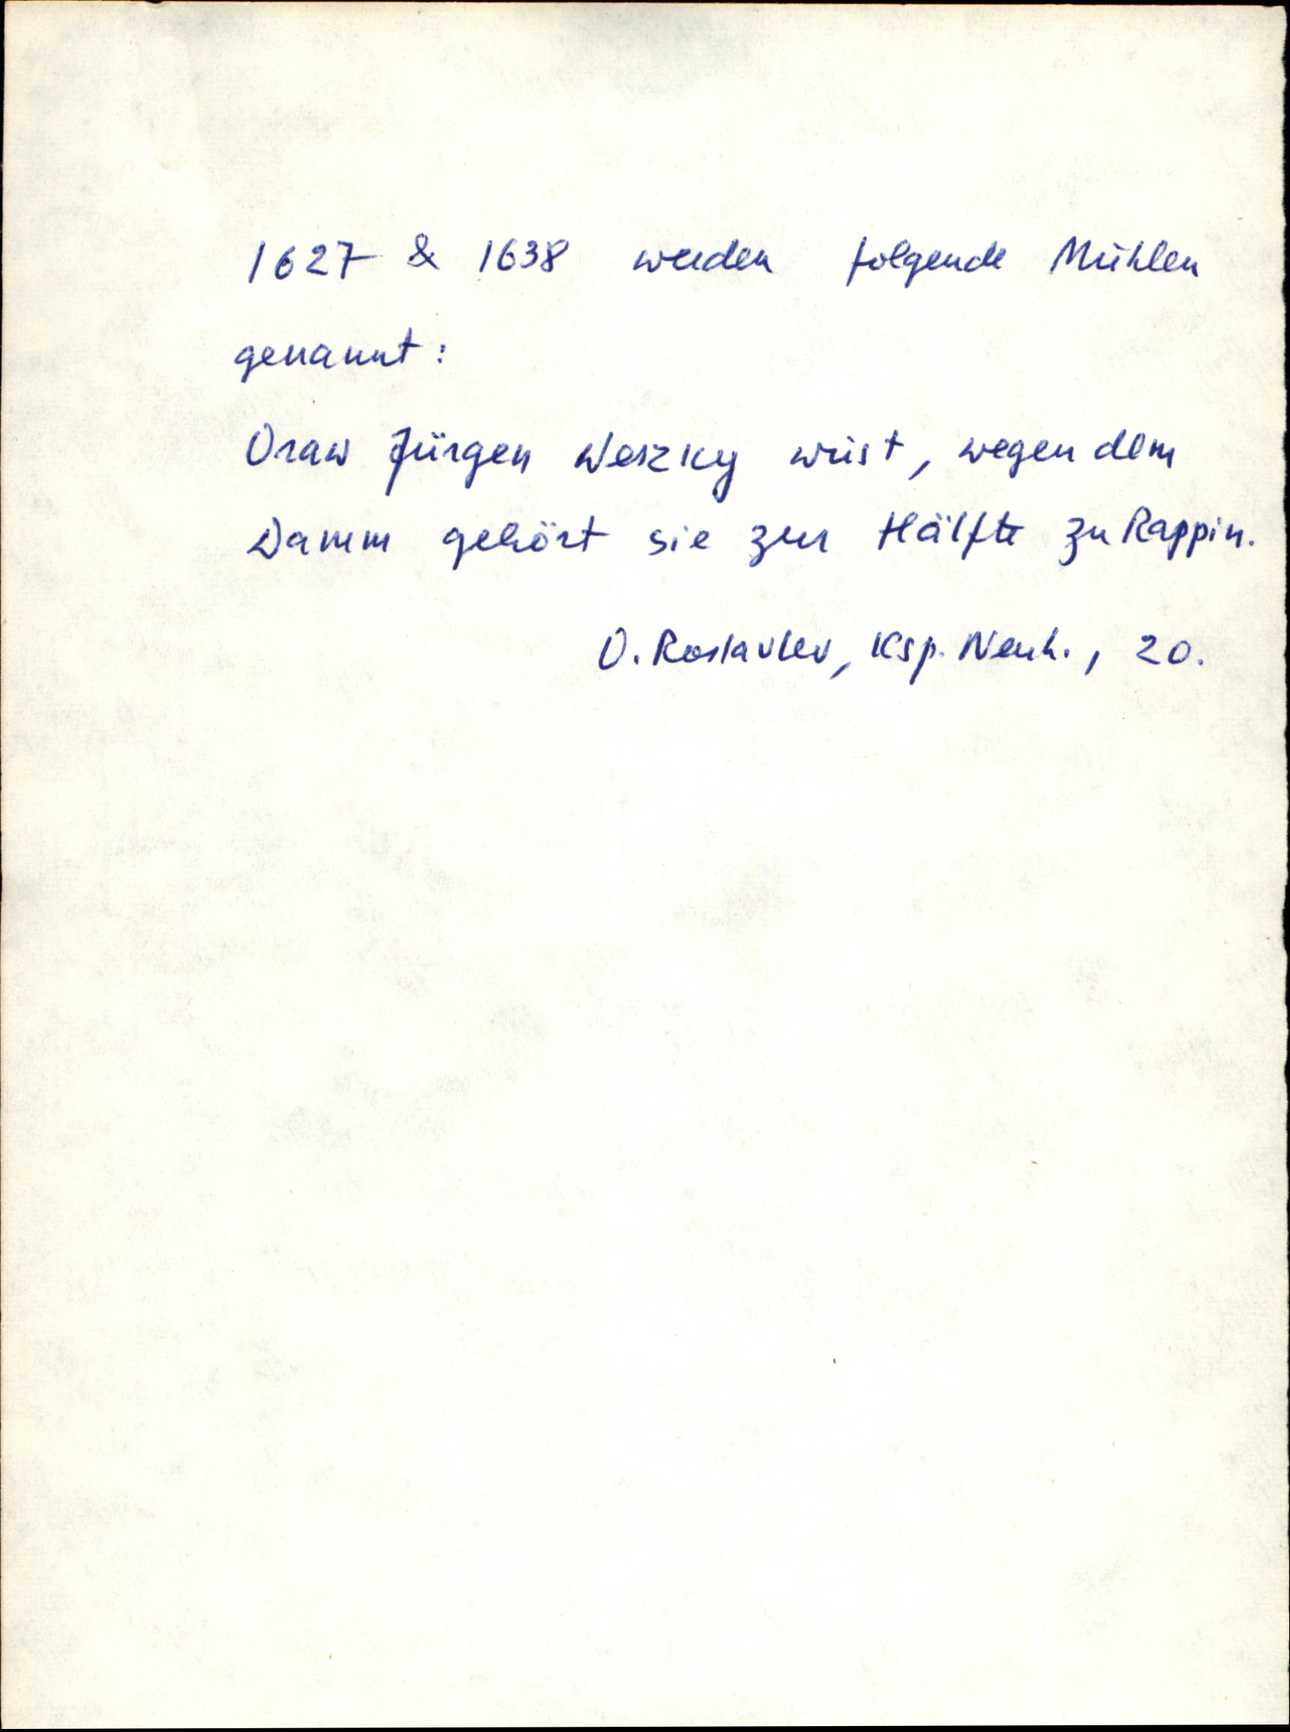 1627 & 1638 werden folgende Mühlen
genannt:
Oraw Jürgen Weszky wüst, wegen dem
Damm gehört sie zur Hälfte zu Rappin.
O. Roslavlev, Ksp. Neuh., 20.